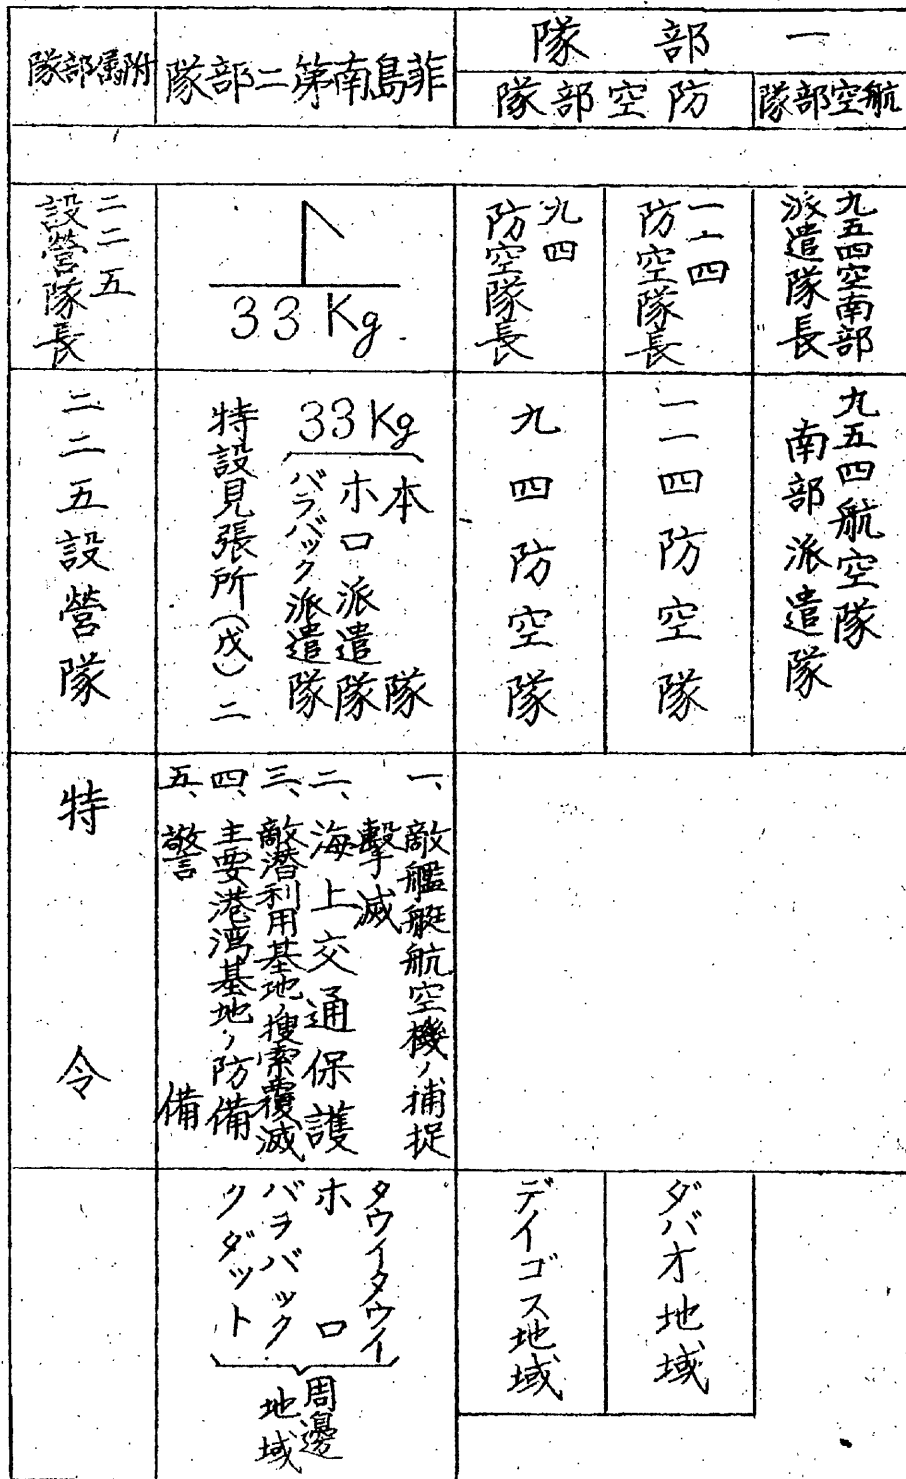 一部隊
航空部隊
防空部隊
菲島南第二部隊
附属部隊
九五四空南部
派遣隊長
一一四
防空隊長
九四
防空隊長
33Kg
二二五
設營隊長
九五四航空隊
南部派遣隊
一一四防空隊
九四防空隊
33Kg
本隊
ホロ派遣隊
バラバック派遣隊
特設見張所(戊)二
二二五設營隊
一、敵艦艇航空機ノ捕捉
擊滅
二、海上交通保護
三、敵潜利用基地ノ搜索覆滅
四、主要港湾基地ノ防備
五、警備
特令
ダバオ地域
デイゴス地域
タウイタウイ
ホロ
バラバック
クダット
周邊
地域